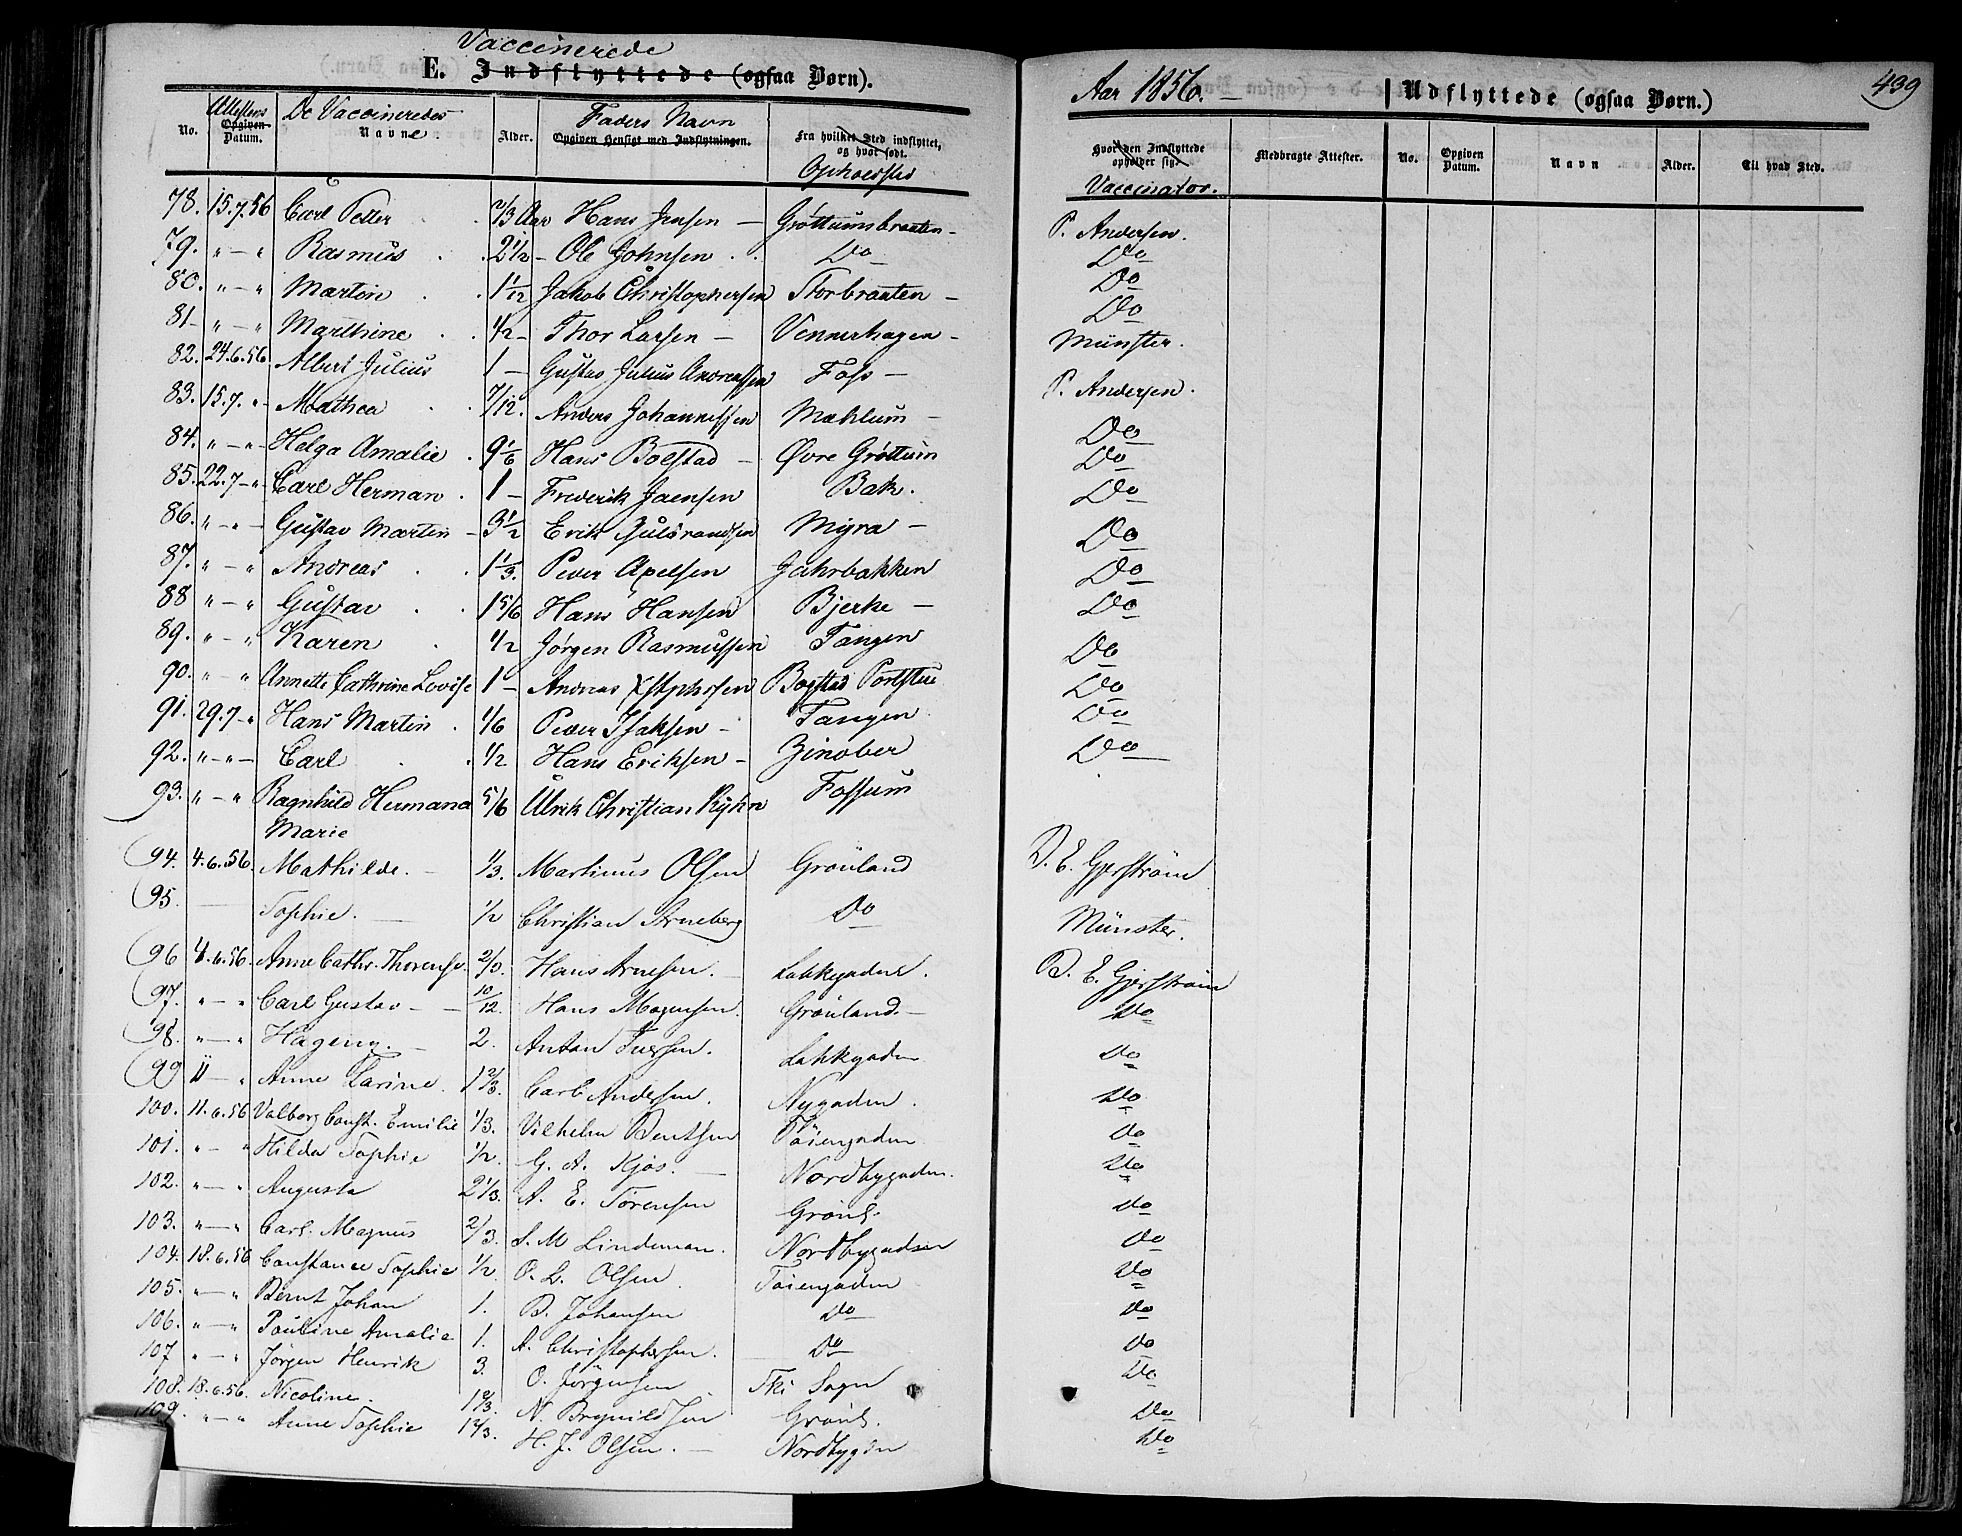 Vaccinerede
E. Indflyttede (ogsaa Børn).
No. Attestens Opgiven Datum. De Vaccineredes Navne Alder. Faders Navn Opgiven Hensigt med Indflytningen. Fra hvilket Sted indflyttet, og hvor født. Opholdssted
78. 15.7.56 Carl Petter 2/3 Aar Hans Jensen — Grøttumsbraaten —
79. " — " Rasmus 2 1/2 — Ole Johnsen Do
80. " — " Martin 1 1/12 Jakob Christophersen Storbraaten —
81 — " — " Marthine 1/2 — Thor Larsen — Vennerhagen —
82. 24.6.56 Albert Julius 1 — Gustav Julius Andreassen Foss —
83. 15.7. " Mathea 7/12. Anders Johannessen Mæhlum —
84. " — " Helga Amalie 9 1/6 Hans Bolstad — Øvre Grøttum
85. 22.7 — " Carl Herman 1 — Frederik Jaensen Bak.
86. " — " — Gustav Martin — 3 1/2 Erik Gulbrandsen Myra —
87. " — " Andreas 1 1/3. Peder Axelsen Jahrbakken
88 " — " Gustav 1 5/6 Hans Hansen Bjerke —
89. " — " Karen 1/2 Jørgen Rasmussen Tangen
90. " — " Annette Cathrine Lovise 1 — Andreas Xstphersen Bogstad Portstue
91. 29.7 — " Hans Martin 1/6 Peder Isaksen — Tangen
92. " — " — Carl 1/2 Hans Eriksen — Zinober
93. " — " Ragnhild Hermana 5/6 Ulrik Christian Kyhn Fossum
Marie
94. 4.6.56 Mathilde. — 1/3. Martinus Olsen Grønland
95. — Sophie. — 1/2 Christian Arneberg Do
96 4.6.56. Anne Cathr. Thorense. 2/3. Hans Arnesen. — Lakkegaden.
97. " — " Carl Gustav — 10/12. Hans Mogensen. Grønland. —
98. " — " Hageny. — 2. Anton Iversen. Lakkegaden
99 11 — " Anne Karine. 1 2/3. Carl Andersen. Nygaden.
100. 11.6.56 Valborg Const. Emilie 1/3. Vilhelm Bentsen Tøiengaden
101. " — " Hilda Sophie 1/2. G. A. Kjøs. — Nordbygaden.
102. " — " Augusta 2 1/3. A. E. Sørensen Grønl.
103. " — " Carl. Magnus 2/3. S. M Lindeman. Nordbygaden
104. 18.6.56 Constance Sophie 1/2. O. L. Olsen Tøiengaden
105. " — " Bernt Johan 1. B. Johansen Do
106. " — " Pauline Amalia 1. A. Christophersen. Do
107 " — " Jørgen Henrik 3. O. Jørgensen Ski Sogn
108. 18.6.56. Nicoline. 1 2/3. N. Brynildsen Grønl.
109. " — " Anne Sophie 1 2/3. H. J. Olsen. — Nordbygden
Aar 1856. — Udflyttede (ogsaa Børn.) 439
Hvor den Indflyttede opholder sig. Vaccinator. Medbragte Attester. No. Opgiven Datum. Navn Alder. Til hvad Sted.
P. Andersen.
Do
Do
Do
Münster.
P. Andersen.
Do
Do
Do
Do
Do
Do
Do
Do
Do
Do
D. E. Gjerstrøm
Münster.
D. E. Gjerstrøm
Do
Do
Do
Do
Do
Do
Do
Do
Do
Do
Do
Do
Do